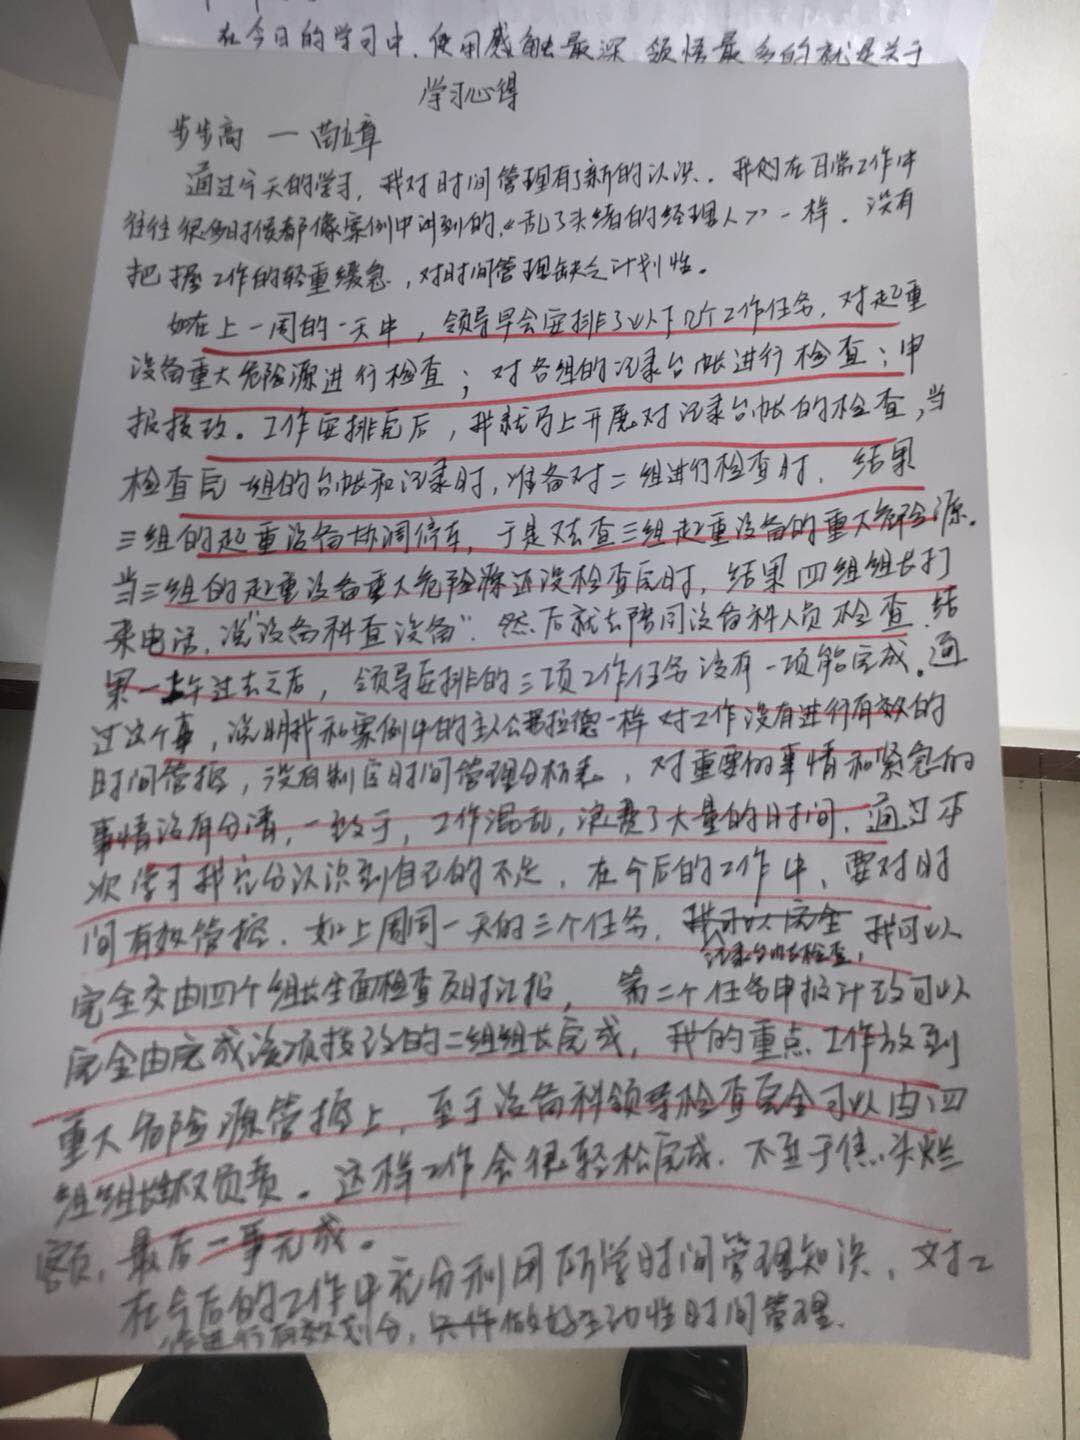 在今日的学习中,使用感触最深 领悟最多的就是关于
学习心得
步步高 一
通过今天的学习,我对时间管理有了新的认识。我们在日常工作中
往往很多时候都像案例中讲到的《乱了头绪的经理人》一样.没有
把握工作的轻重缓急,对时间管理缺乏计划性。
如在上一周的一天中,领导早会安排了以下几个工作任务.对起重
设备重大危险源进行检查;对各组的记录台帐进行检查;申
报技改。工作安排完后,我就马上开展对记录台帐的检查,当
检查完一组的台帐和记录时,准备对二组进行检查时.结果
三组的起重设备协调停车,于是又去查三组起重设备的重大危险源.
当三组的起重设备重大危险源还没检查完时,结果四组组长打
来电话,说"设备科查设备".然后就去陪同设备科人员检查.结
果一上午过去之后,领导安排的三项工作任务没有一项能完成.通
过这个事,说明我和案例中的主人公弗拉德一样 对工作没有进行有效的
时间管控,没有制定时间管理分析表,对重要的事情和紧急的
事情没有分清,一致于,工作混乱,浪费了大量的时间.通过本
次学习我充分认识到自己的不足.在今后的工作中,要对时
间有效管控.如上周同一天的三个任务.我可以完全 我可以
记录台帐检查,
完全交由四个组长全面检查及时汇报,第二个任务申报计改可以
完全由完成该项技改的二组组长完成,我的重点工作放到
重大危险源管控上,至于设备科领导检查完全可以由四
组组长权负责。这样工作会很轻松完成.不至于焦头烂
额,最后一事无成。
在今后的工作中充分利用所学时间管理知识,对工
作进行有效划分,做好主动性时间管理.